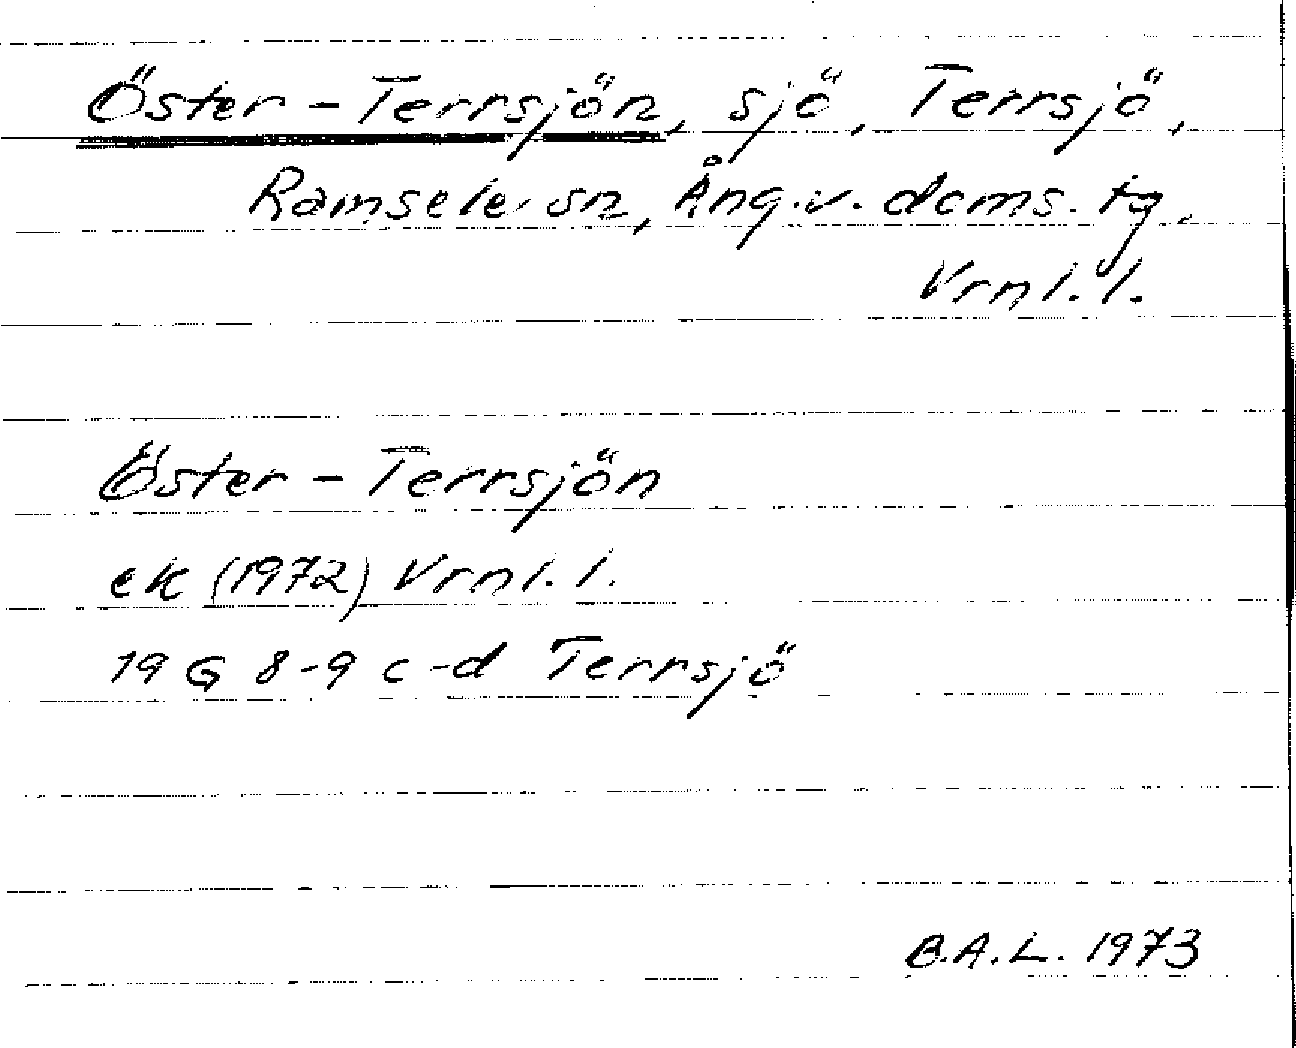 Öster-Terrsjön, sjö, Terrsjö,
Ramsele sn, Ång.v. doms. tg.
Vrnl. l.
Öster-Terrsjön
ek (1972) Vrnl. l.
19 G 8-9 c-d Terrsjö
B.A.L. 1973